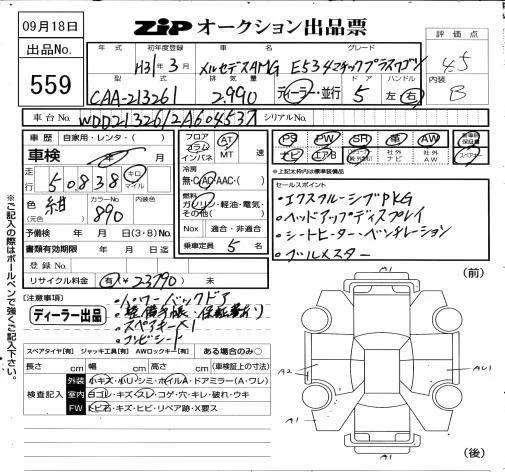 09月18日
ZIP オークション出品票
出品No.
559
評価点
4.5
内装
B
年式 初年度登録 車名 グレード
H31年3月 メルセデスAMG E534マチックプラスワゴン
型式 排気量 ドア ハンドル
CAA-213261 2.990 ディーラー・並行 5 左・右
車台No. WDD2132612A604537 シリアルNo.
車歴 自家用・レンタ・( )
車検 年 月
走行 50838 キロ マイル
色 (元色) 紺 カラーNo 890 内装色
予備検 年 月 日(3・8)No.
書類有効期限 年 月 日迄
登録No.
リサイクル料金 有(¥23790) 未
フロア コラム インパネ AT MT 速
冷房 無・C・AC・AAC・( )
燃料 ガソリン・軽油・電気・その他( )
Nox 適合・非適合
乗車定員 5 名
PS PW SR 革 AW
ナビ エアB 社外ナビ 社外AW
保証書
※上記太枠内は標準装備品
セールスポイント
・エクスクルーシブPKG
・ヘッドアップディスプレイ
・シートヒーター・ベンチレーション
・ブルメスター
[注意事項]
ディーラー出品
・パワーバックドア
・整備手帳・保証書あり
・スペアキー×1
・コンビシート
スペアタイヤ[有] ジャッキ工具[有] AWロックキー[有] ある場合のみ○
長さ cm 幅 cm 高さ cm (車検証上の寸法)
検査記入
外装 小キズ・小リ・シミ・ホイルA・ドアミラー(A・ワレ)
室内 白ゴレ・キズ・スレ・コゲ・穴・キレ・破れ・ウキ
FW トビ石・キズ・ヒビ・リペア跡・X要ス
※ご記入の際はボールペンで強くご記入下さい。
(前)
A1
A2
AU1
A1
A1
(後)